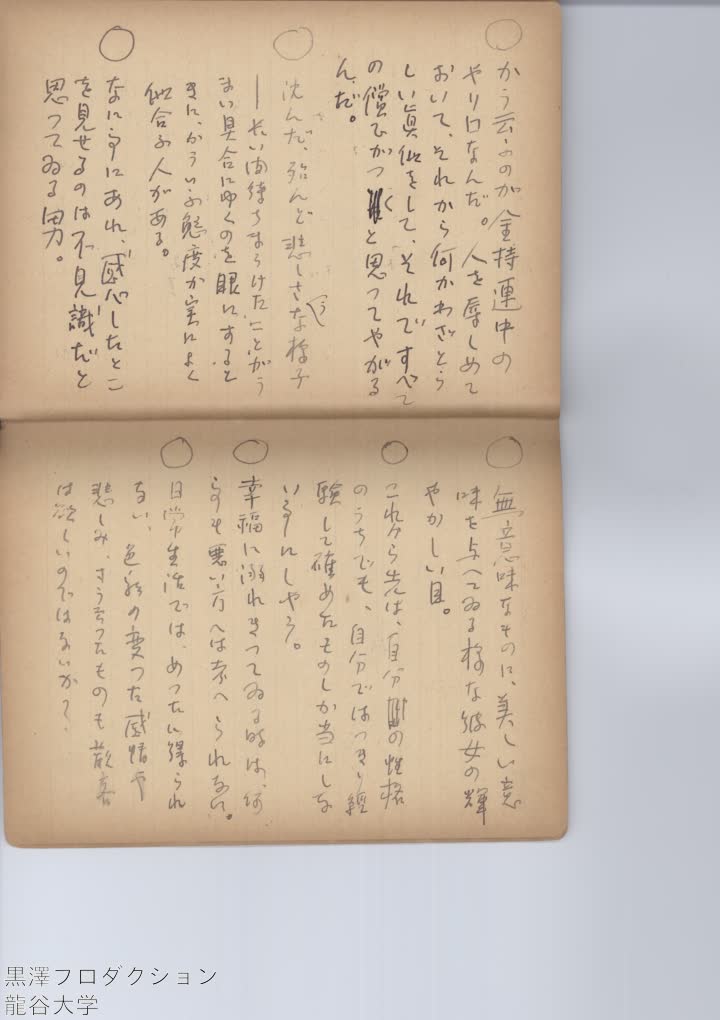 かう云ふのが金持連中の
やり口なんだ。人を辱しめて
おいて、それから何かわざとら
しい真似をして、それですべて
の償でがつくと思つてやがる
んだ。
沈んだ、殆んど悲しさうな様子
――長い間待ちまうけたことがう
まい具合にゆくのを眼にすると
きに、かういふ態度が実によく
似合ふ人がある。
なに事にあれ、感心したとこ
を見せるのは不見識だと
思つてゐる男。
無意味なものに、美しい意
味を与へてゐる様な彼女の輝
やかしい目。
これから先は、自分の性格
のうちでも、自分ではつきり経
験して確めたものしか当にしな
い事にしやう。
幸福に溺れきつてゐる時は、何
事も悪い方へは考へられない。
日常生活では、めつたに得られ
ない、色彩の変つた感情や
悲しみ、さう云つたものも観客
は欲しいのではないか?
黒澤プロダクション
龍谷大学